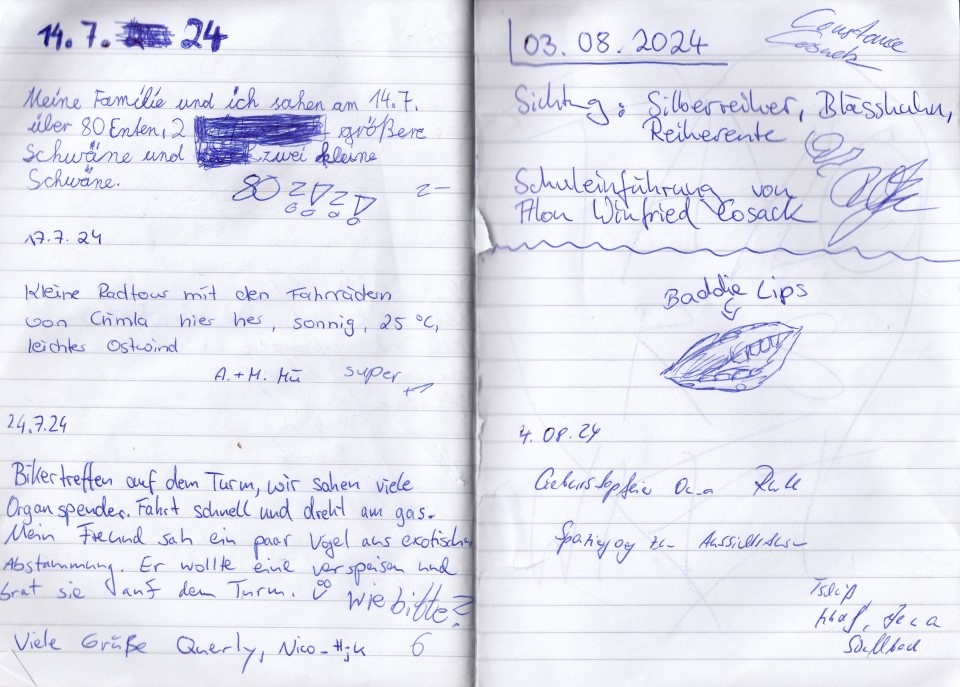 14.7. 24
Meine Familie und ich sahen am 14.7.
über 80 Enten, 2 größere
Schwäne und zwei kleine
Schwäne.
80
2-
17.7.24
Kleine Radtour mit den Fahrrädern
von Crimla hier her, sonnig, 25 °C,
leichter Ostwind
A. + M. Mü super
24.7.24
Bikertreffen auf dem Turm, wir sahen viele
Organspender. Fahrt schnell und dreht am gas.
Mein Freund sah ein paar Vögel aus exotischer
Abstammung. Er wollte eine verspeisen und
brat sie auf dem Turm.
Wie bitte?
Viele Grüße Querly, Nico 6
03.08.2024
Constanze
Cosack
Sichtung: Silberreiher, Blässhuhn,
Reiherente
Schuleinführung von
Winfried Cosack
Baddie Lips
4.08.24
Oma